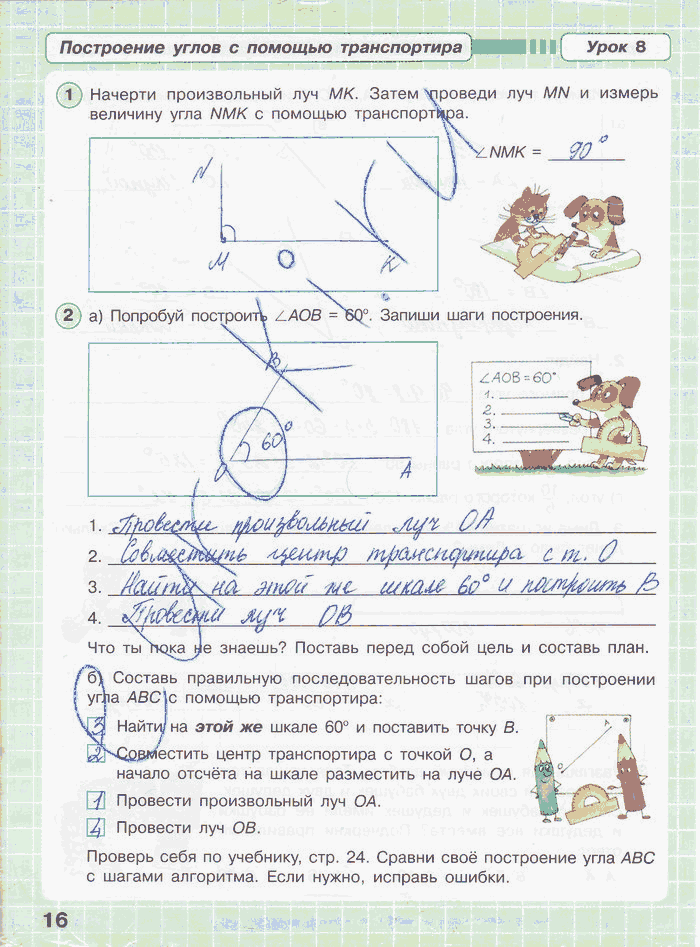 Построение углов с помощью транспортира
Урок 8
1 Начерти произвольный луч MK. Затем проведи луч MN и измерь
величину угла NMK с помощью транспортира.
∠NMK = 90°
N
M
K
2 а) Попробуй построить ∠AOB = 60°. Запиши шаги построения.
B
60°
O
A
∠AOB=60°
1.
2.
3.
4.
1. Провести произвольный луч OA
2. Совместить центр транспортира с т. O
3. Найти на этой же шкале 60° и построить B
4. Провести луч OB
Что ты пока не знаешь? Поставь перед собой цель и составь план.
б) Составь правильную последовательность шагов при построении
угла ABC с помощью транспортира:
3 Найти на этой же шкале 60° и поставить точку B.
2 Совместить центр транспортира с точкой O, а
начало отсчёта на шкале разместить на луче OA.
1 Провести произвольный луч OA.
4 Провести луч OB.
Проверь себя по учебнику, стр. 24. Сравни своё построение угла ABC
с шагами алгоритма. Если нужно, исправь ошибки.
16